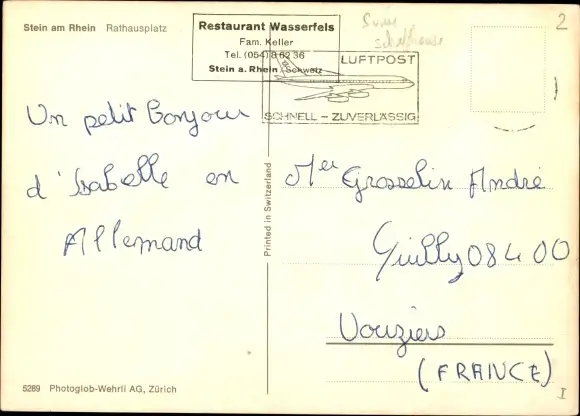 Stein am Rhein Rathausplatz
Restaurant Wasserfels
Fam. Keller
Tel. (054) 8 62 36
Stein a. Rhein Schweiz
LUFTPOST
SCHNELL – ZUVERLÄSSIG
2
Un petit Bonjour
d'Isabelle en
Allemand
Printed in Switzerland
Mer Grosselin André
Quilly 08400
Vouziers
(FRANCE)
5289 Photoglob-Wehrli AG, Zürich
I